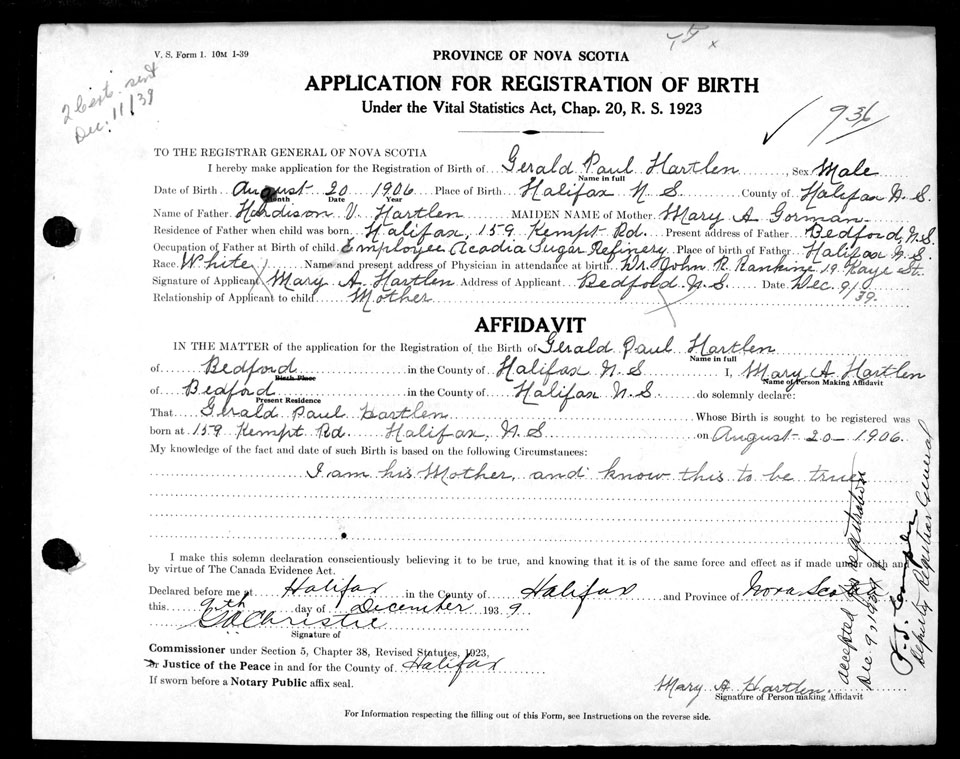 V. S. Form 1. 10M 1-39
PROVINCE OF NOVA SCOTIA
APPLICATION FOR REGISTRATION OF BIRTH
Under the Vital Statistics Act, Chap. 20, R. S. 1923
2 Cert. sent
Dec. 11/39
936
TO THE REGISTRAR GENERAL OF NOVA SCOTIA
I hereby make application for the Registration of Birth of Gerald Paul Hartlen, Sex Male
Name in full
Date of Birth August 20 1906 Place of Birth Halifax N S County of Halifax N.S.
Month Date Year
Name of Father Hardison V. Hartlen MAIDEN NAME of Mother Mary A Gorman
Residence of Father when child was born Halifax, 159 Kempt Rd. Present address of Father Bedford, N.S.
Occupation of Father at Birth of child Employee Acadia Sugar Refinery Place of birth of Father Halifax N.S.
Race White Name and present address of Physician in attendance at birth Dr. John R. Rankine 19 Kaye St.
Signature of Applicant Mary A. Hartlen Address of Applicant Bedford N.S. Date Dec. 9/39.
Relationship of Applicant to child Mother
AFFIDAVIT
IN THE MATTER of the application for the Registration of the Birth of Gerald Paul Hartlen
Name in full
of Bedford in the County of Halifax N.S. I, Mary A Hartlen
Birth Place Name of Person Making Affidavit
of Bedford in the County of Halifax N.S. do solemnly declare:
Present Residence
That Gerald Paul Hartlen Whose Birth is sought to be registered was
born at 159 Kempt Rd Halifax, N.S. on August 20 1906.
My knowledge of the fact and date of such Birth is based on the following Circumstances:
I am his Mother, and know this to be true
I make this solemn declaration conscientiously believing it to be true, and knowing that it is of the same force and effect as if made under oath and
by virtue of The Canada Evidence Act.
Declared before me at Halifax in the County of Halifax and Province of Nova Scotia
this 9th day of December 1939
G A Christie
Signature of
Commissioner under Section 5, Chapter 38, Revised Statutes, 1923,
or Justice of the Peace in and for the County of Halifax
If sworn before a Notary Public affix seal.
Mary A Hartlen.
Signature of Person making Affidavit
For Information respecting the filling out of this Form, see Instructions on the reverse side.
accepted for registration
Dec 9, 1939
Deputy Registrar General